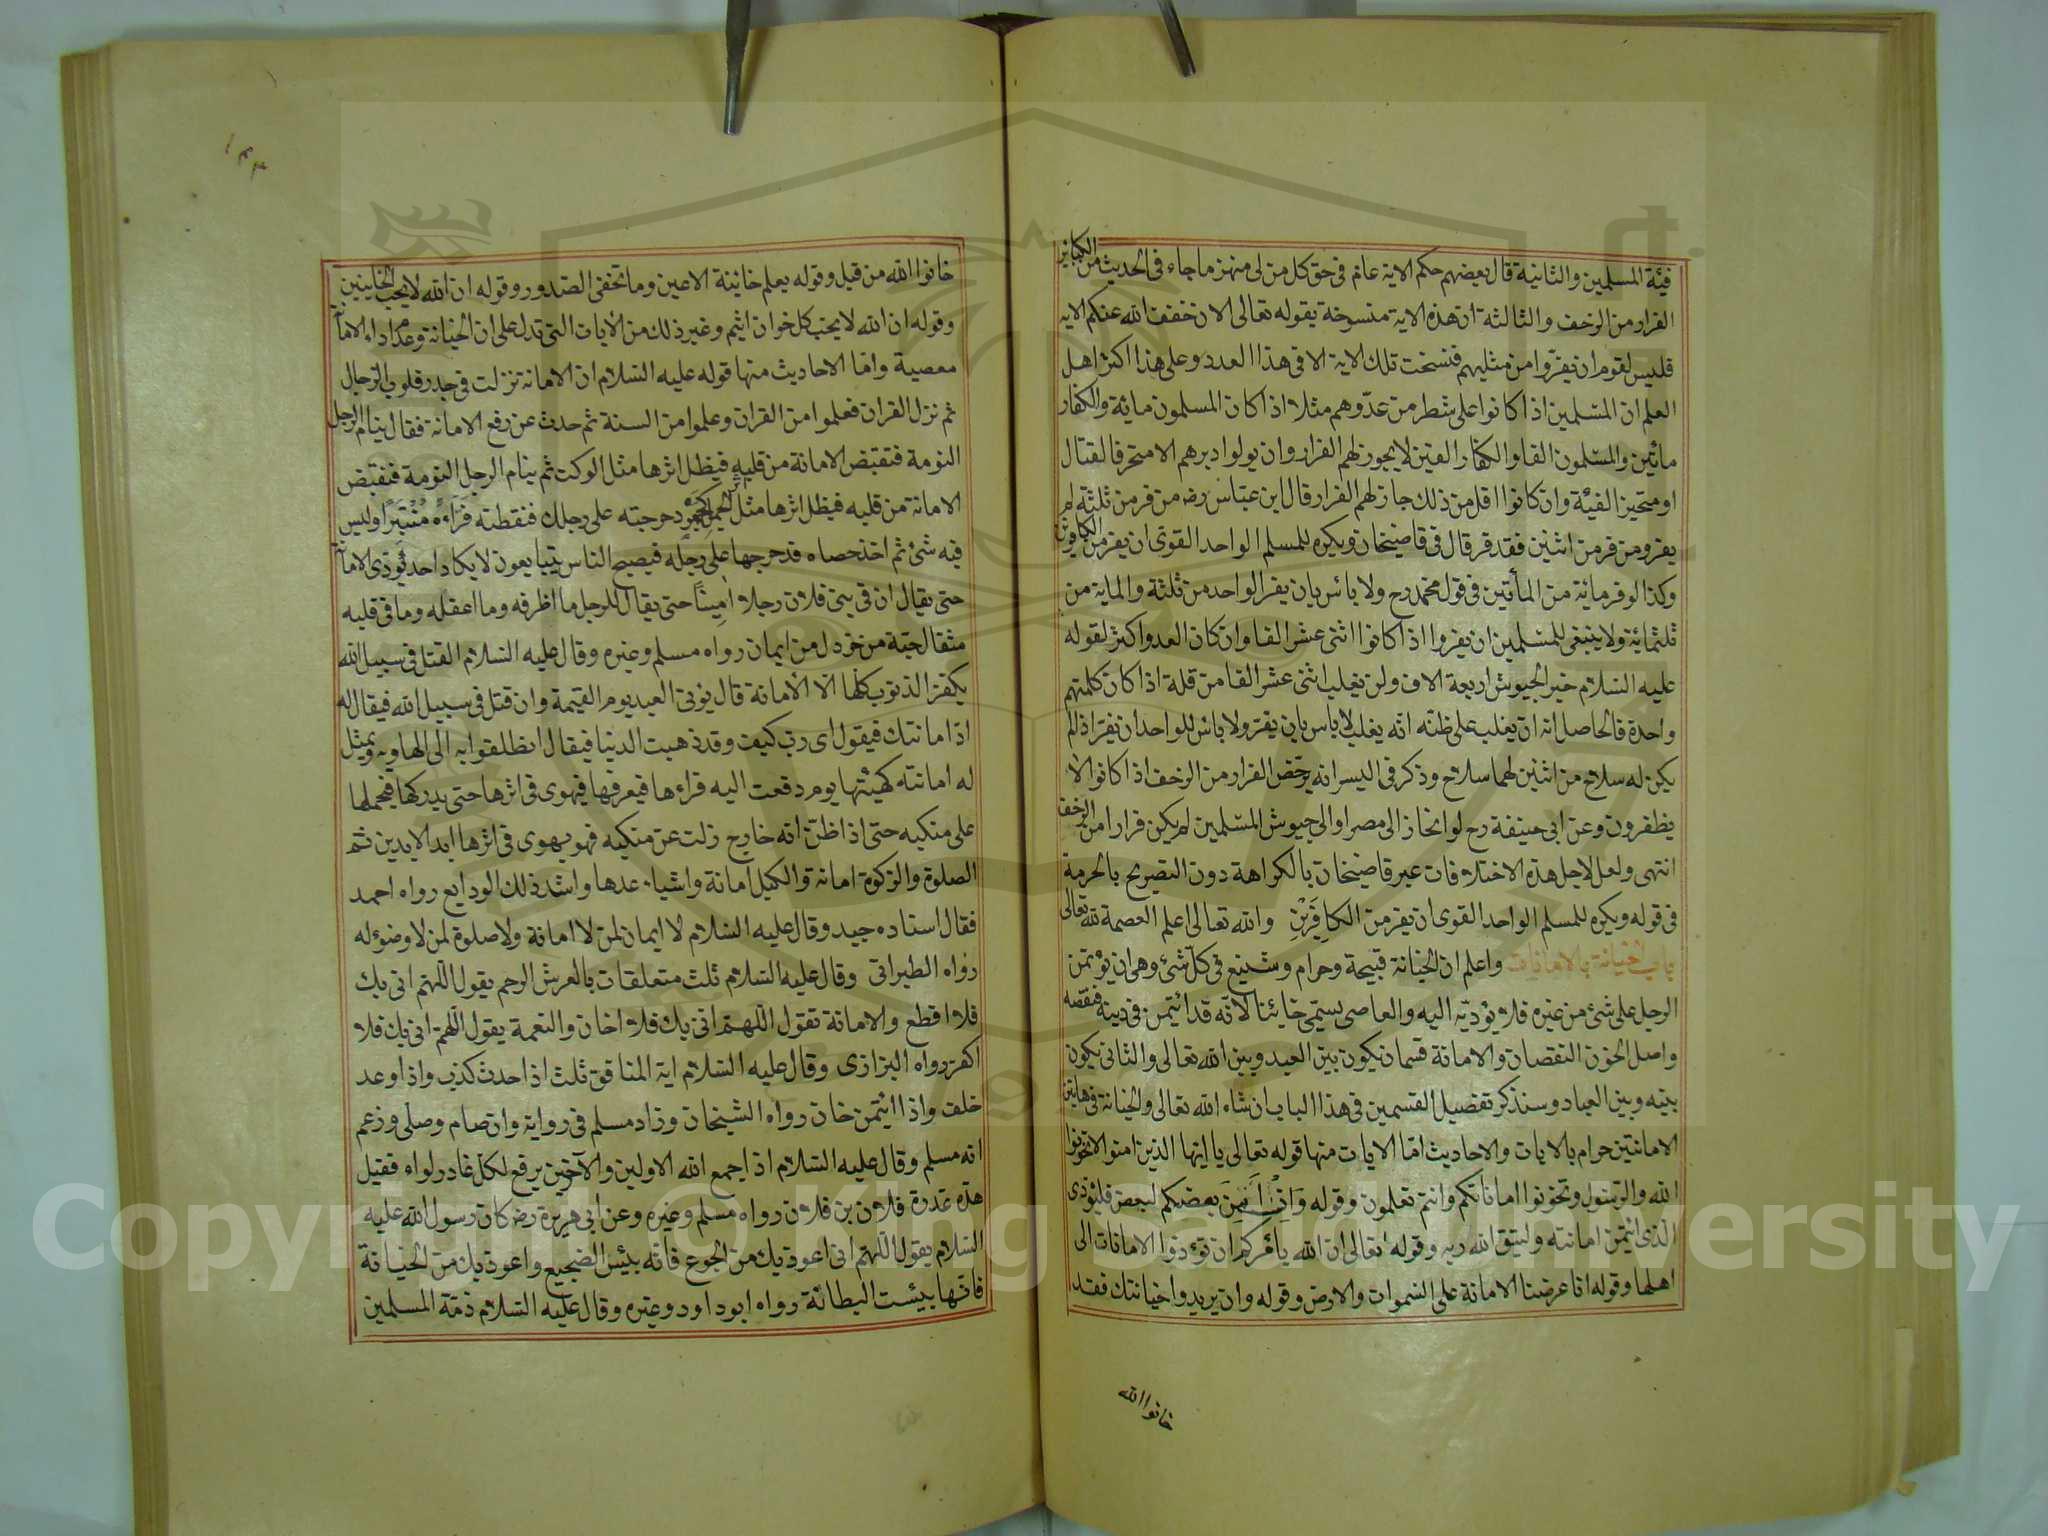 فيئة المسلمين والثانية قال بعضهم حكم الاية عام فى حق كل من لى منهز ما جاء فى الحديث من الكبائر
الفرار من الزخف والثالثة ان هذه الاية منسوخة بقوله تعالى الان خفف الله عنكم الاية
فليس لقوم ان يفروا من مثليهم فنسخت تلك الاية الا فى هذا العدد وعلى هذا اكثر اهل
العلم ان المسلمين اذا كانوا على شطر من عدوهم مثلا اذا كان المسلمون مائة والكفار
مائتين والمسلمون الفا والكفار الفين لا يجوز لهم الفرار وان يولوا دبرهم الا متحرفا لقتال
او متحيزا لفيئة وان كانوا اقل من ذلك جاز لهم الفرار قال ابن عباس رضه من فر من ثلثة لم
يفر ومن فر من اثنين فقد فر قال فى قاضيخان ويكره للمسلم الواحد القوى ان يفر من الكافرين
وكذا لو فر مائة من المأتين فى قول محمد رح ولا بائس بان يفر الواحد من ثلثة والماية من
ثلثمائة ولا ينبغى للمسلمين ان يفروا اذا كانوا اثنى عشر الفا وان كان العدو اكثر لقوله
عليه السلام خير الجيوش اربعة الاف ولن يغلب اثنى عشر الفا من قلة اذا كان كلمتهم
واحدة فالحاصل انه ان يغلب على ظنه انه يغلب لا باس بان يفر ولا باس للواحد ان يفر اذا لم
يكن له سلاح من اثنين لهما سلاح وذكر فى اليسر انه يرخص الفرار من الزخف اذا كانوا لا
يظفرون وعن ابى حنيفة رح لو انحاز الى مصر او الى جيوش المسلمين لم يكن فرارا من الزخف
انتهى ولعل لاجل هذه الاختلافات عبر قاضيخان بالكراهة دون التصريح بالحرمة
فى قوله ويكره للمسلم الواحد القوى ان يفر من الكافِرَيْنِ والله تعالى اعلم العصمة لله تعالى
باب الخيانة بالامانات واعلم ان الخيانة قبيحة وحرام وشنيع فى كل شئ وهى ان يؤتمن
الرجل على شئ من غيره فلا يؤديه اليه والعاصى يسمى خائنا لانه قد ائتمن فى دينه فنقصه
واصل الخون النقصان والامانة قسمان يكون بين العبد وبين الله تعالى والثانى يكون
بينه وبين العباد وسنذكر تفصيل القسمين فى هذا الباب ان شاء الله تعالى والخيانة فى هاتين
الامانتين حرام بالايات والاحاديث اما الايات منها قوله تعالى يا ايها الذين امنوا لا تخونوا
الله والرسول وتخونوا اماناتكم وانتم تعلمون وقوله وان امن بعضكم لبعض فليؤدى
الذى ائتمن امانته وليتق الله ربه وقوله تعالى ان الله يأمركم ان تؤدوا الامانات الى
اهلها وقوله انا عرضنا الامانة على السموات والارض وقوله وان يريدوا خيانتك فقد
خانوا الله
خانوا الله من قبل وقوله يعلم خائنة الاعين وما تخفى الصدور وقوله ان الله لا يحب الخاينين
وقوله ان الله لا يحب كل خوان اثيم وغير ذلك من الايات التى تدل على ان الخيانة وعدم اداء الاما
معصية واما الاحاديث منها قوله عليه السلام ان الامانة نزلت فى جدر قلوب الرجال
ثم نزل القران فعلموا من القران وعلموا من السنة ثم حدث عن رفع الامانة فقال ينام الرجل
النومة فتقبض الامانة من قلبه فيظل اثرها مثل الوكت ثم ينام الرجل النومة فتقبض
الامانة من قلبه فيظل اثرها مثل المجل كجمر دحرجته على رجلك فنفطته فتراه مُنْتَبِرًا وليس
فيه شئ ثم اخذ حصاه فدحرجها على رجله فيصبح الناس يتبايعون لا يكاد احد يؤدى الاما
حتى يقال ان فى بنى فلان رجلا امينًا حتى يقال للرجل ما اظرفه وما اعقله وما فى قلبه
مثقال حبة من خردل من ايمان رواه مسلم وغيره وقال عليه السلام القتل فى سبيل الله
يكفر الذنوب كلها الا الامانة قال يؤتى العبد يوم القيمة وان قتل فى سبيل الله فيقال له
اد امانتك فيقول اى رب كيف وقد ذهبت الدنيا فيقال انطلقوا به الى الهاوية ويمثل
له امانته كهيئتها يوم دفعت اليه فراءها فيعرفها فيهوى فى اثرها حتى يدركها فيحملها
على منكبيه حتى اذا ظن انه خارج زلت عن منكبيه فهو يهوى فى اثرها ابد الابدين ثم
الصلوة والزكوة امانة والكيل امانة واشياء عدها واشد ذلك الودايع رواه احمد
فقال اسناده جيد وقال عليه السلام لا ايمان لمن لا امانة ولا صلوة لمن لا وضوء له
رواه الطبرانى وقال عليه السلام ثلث متعلقات بالعرش الرحم يقول اللهم انى بك
فلا اقطع والامانة تقول اللهم انى بك فلا اخان والنعمة يقول اللهم انى بك فلا
اكفر رواه البزازى وقال عليه السلام اية المنافق ثلث اذا حدث كذب واذا وعد
خلف واذا ائتمن خان رواه الشيخان وزاد مسلم فى رواية وان صام وصلى وزعم
انه مسلم وقال عليه السلام اذا جمع الله الاولين والآخرين يرفع لكل غادر لواء فقيل
هذه غدرة فلان بن فلان رواه مسلم وغيره وعن ابى هريرة رضه كان رسول الله عليه
السلام يقول اللهم انى اعوذ بك من الجوع فانه بئس الضجيع واعوذ بك من الخيانة
فانها بيئست البطانة رواه ابو داود وغيره وقال عليه السلام ذمة المسلمين
Copyright © King Saud University